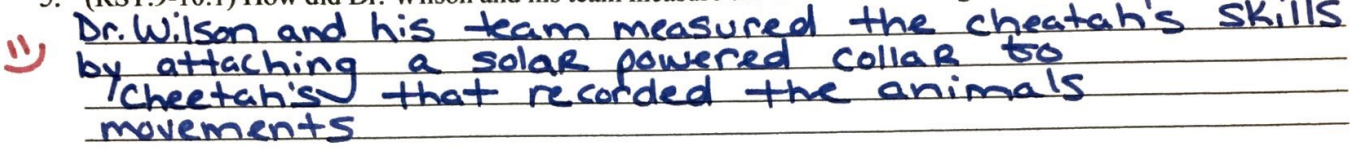 Dr. Wilson and his team measured the cheatah's skills
by attaching a solar powered collar to
cheetah's that recorded the animals
movements